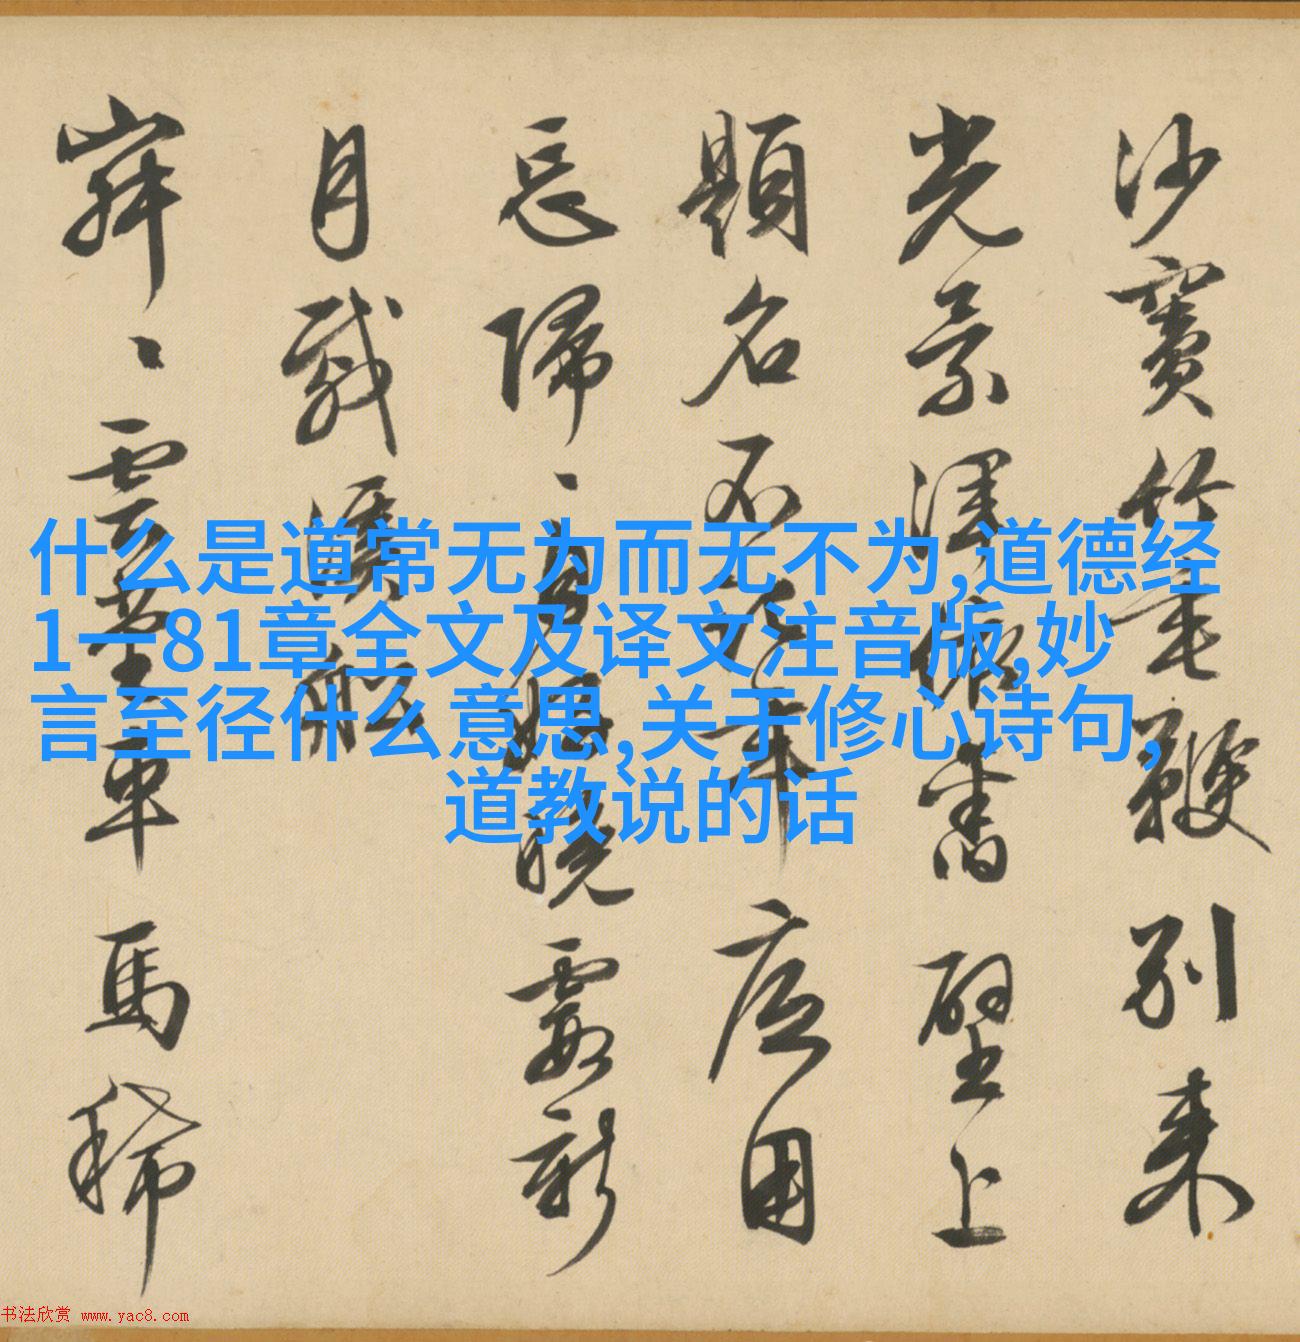 什么是道常无为而无不为,道德经
1一81章全文及译文注音版,妙
言至径什么意思,关于修心诗句,
道教说的话
沙竹鞭别来
光景渾舊壁上
題名不年用
忘歸曉新
月溪船
雲車馬稀
书法欣赏 www.yac8.com